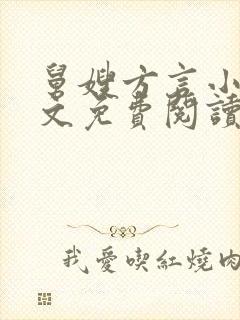 舅嫂方言小
文免費閱讀
我愛喫紅燒肉